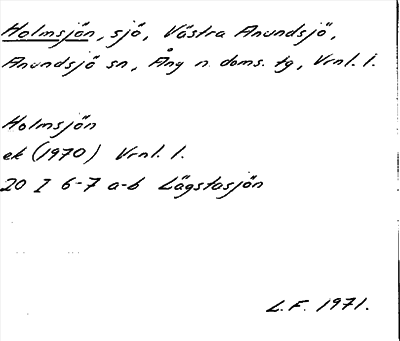 Holmsjön, sjö, Västra Anundsjö,
Anundsjö sn, Ång n. doms. tg, Vrnl. l.
Holmsjön
ek (1970) Vrnl. l.
20 I 6-7 a-b Lägstasjön
L.F. 1971.